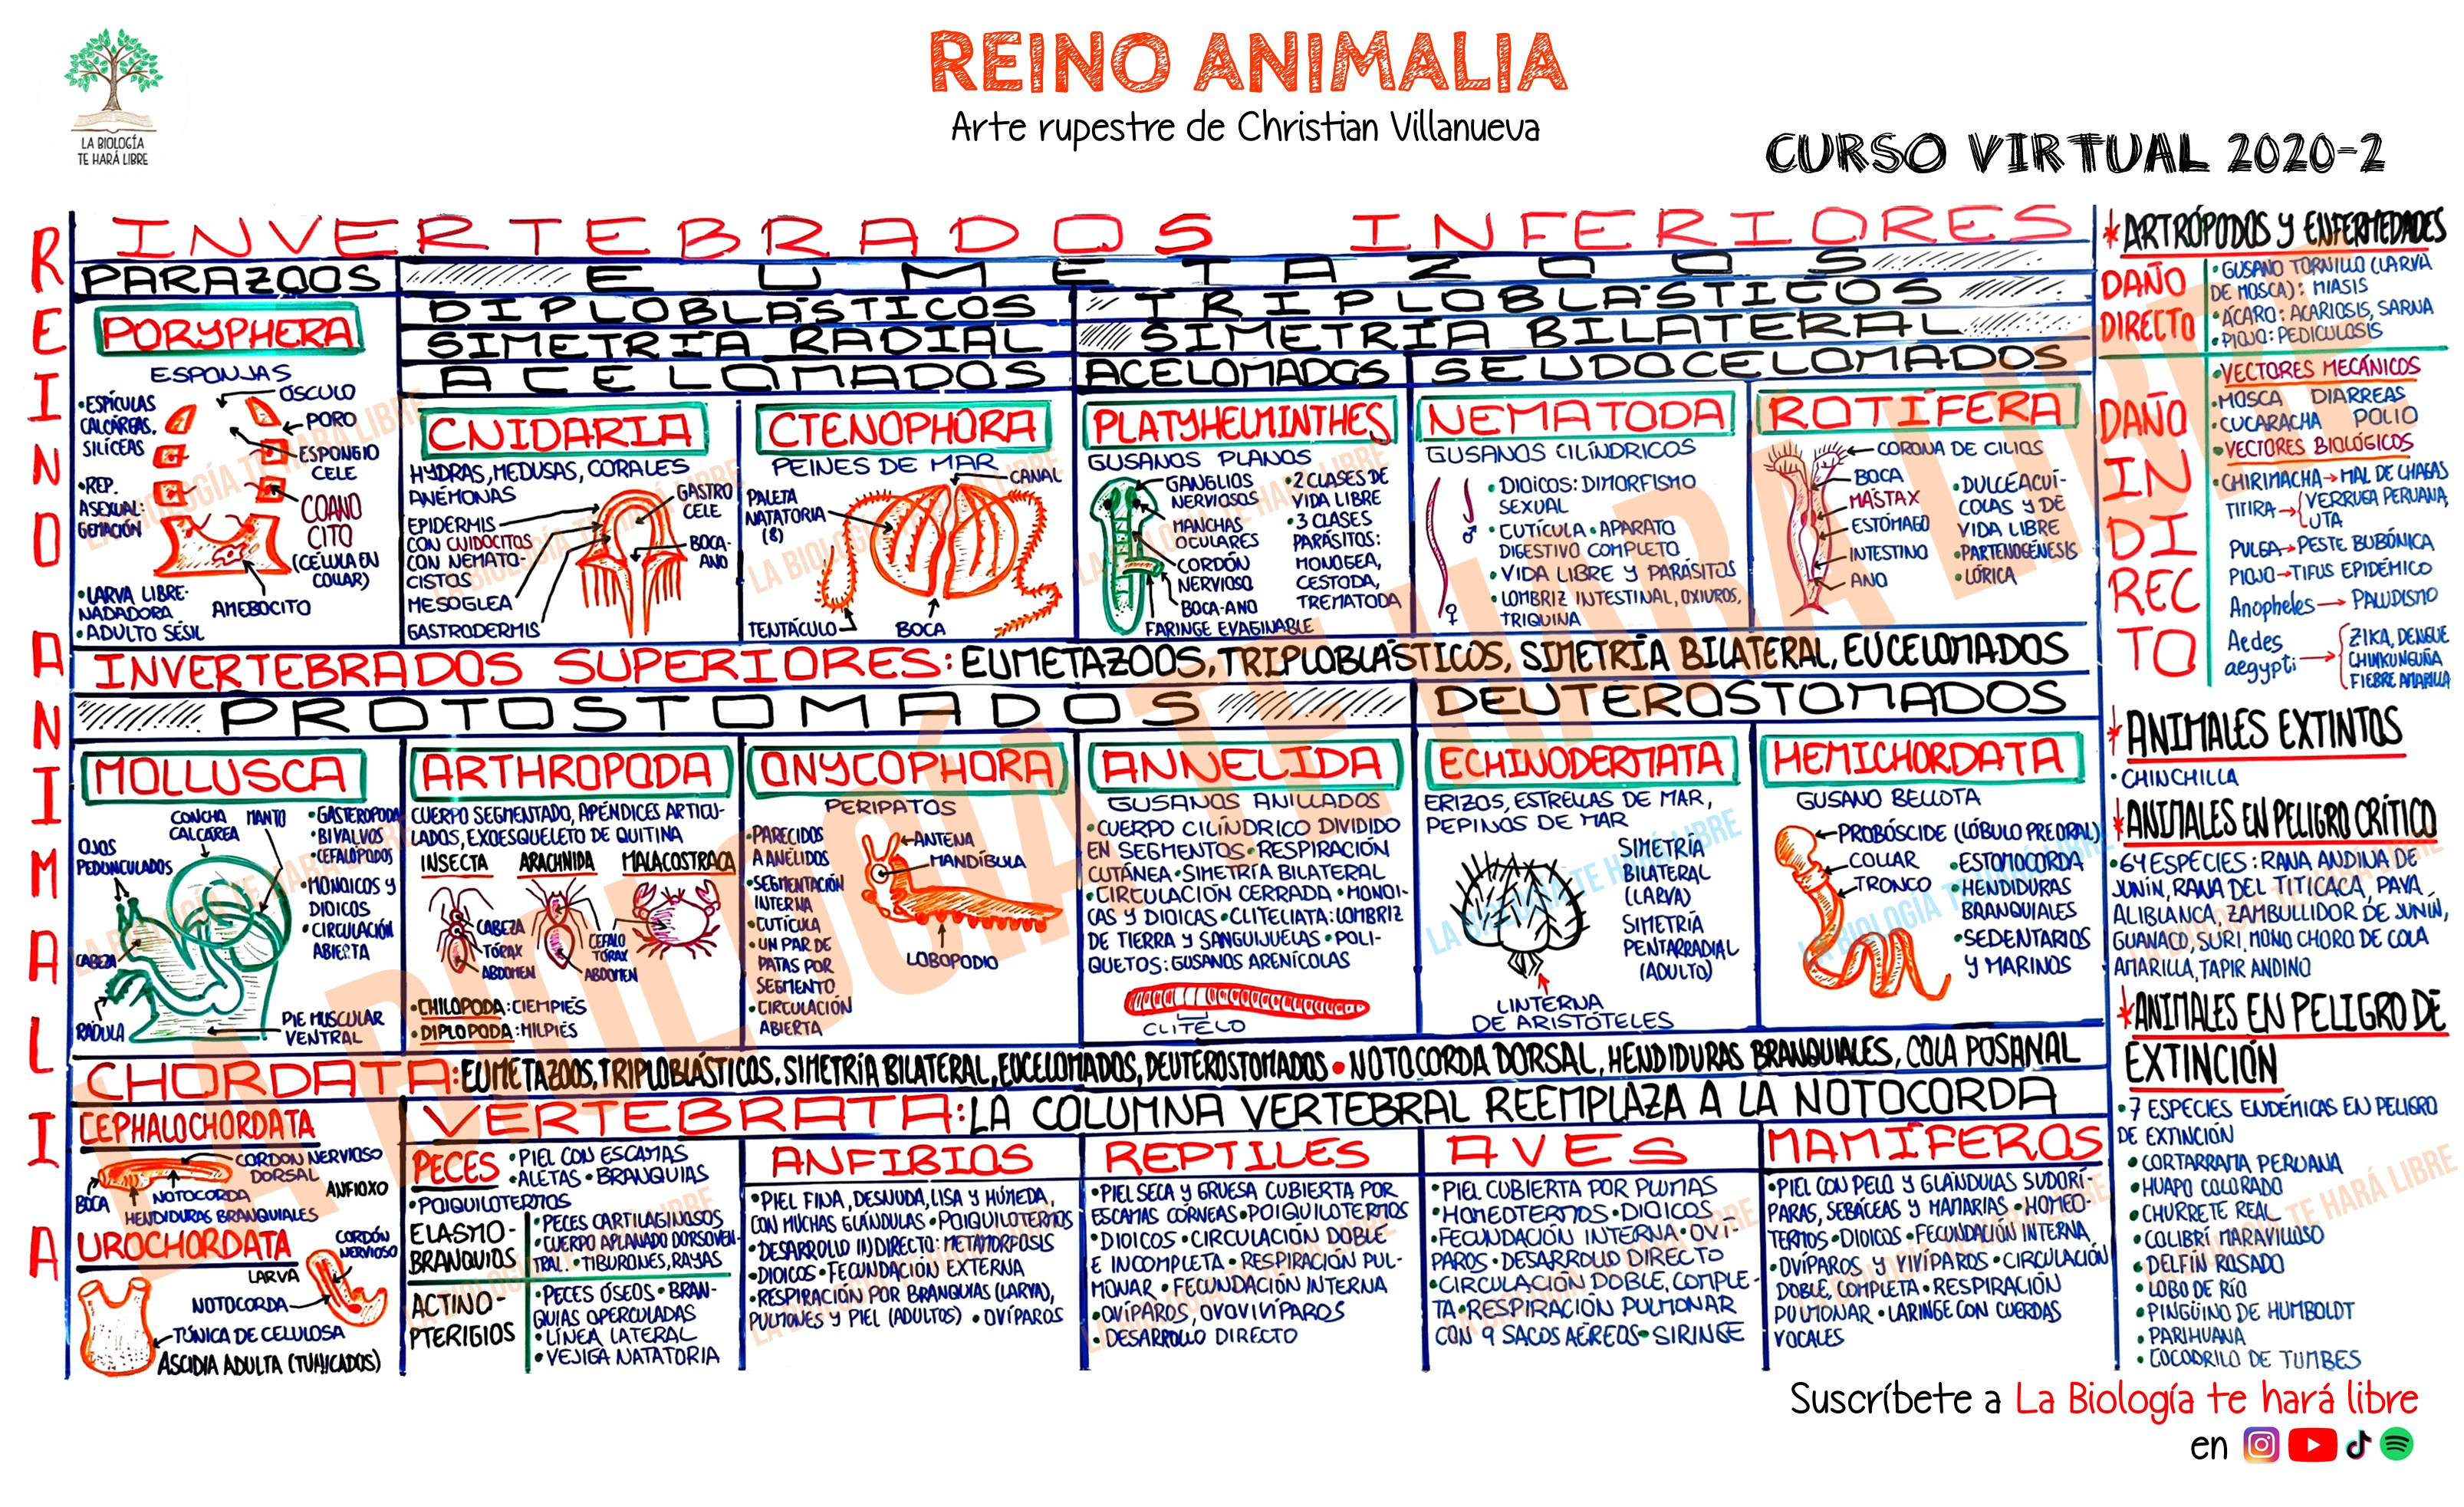 LA BIOLOGÍA
TE HARÁ LIBRE
REINO ANIMALIA
Arte rupestre de Christian Villanueva
CURSO VIRTUAL 2020-2
REINO ANIMALIA
INVERTEBRADOS INFERIORES
PARAZOOS
EUMETAZOOS
DIPLOBLÁSTICOS
TRIPLOBLÁSTICOS
SIMETRÍA RADIAL
SIMETRÍA BILATERAL
ACELOMADOS
ACELOMADOS
SEUDOCELOMADOS
PORYPHERA
ESPONJAS
•ESPÍCULAS
CALCÁREAS,
SILÍCEAS
•REP.
ASEXUAL:
GEMACIÓN
•LARVA LIBRE-
NADADORA
•ADULTO SÉSIL
ÓSCULO
PORO
ESPONGIO
CELE
COANO
CITO
(CÉLULA EN
COLLAR)
AMEBOCITO
CNIDARIA
HYDRAS, MEDUSAS, CORALES
ANÉMONAS
EPIDERMIS
CON CNIDOCITOS
CON NEMATO-
CISTOS
MESOGLEA
GASTRODERMIS
GASTRO
CELE
BOCA-
ANO
CTENOPHORA
PEINES DE MAR
CANAL
PALETA
NATATORIA
(8)
TENTÁCULO
BOCA
PLATYHELMINTHES
GUSANOS PLANOS
GANGLIOS
NERVIOSOS
MANCHAS
OCULARES
CORDÓN
NERVIOSO
BOCA-ANO
FARINGE EVAGINABLE
•2 CLASES DE
VIDA LIBRE
•3 CLASES
PARÁSITOS:
MONOGEA,
CESTODA,
TREMATODA
NEMATODA
GUSANOS CILÍNDRICOS
•DIOICOS: DIMORFISMO
SEXUAL
•CUTÍCULA •APARATO
DIGESTIVO COMPLETO
•VIDA LIBRE Y PARÁSITOS
•LOMBRIZ INTESTINAL, OXIUROS,
TRIQUINA
♂
♀
ROTÍFERA
CORONA DE CILIOS
BOCA
MÁSTAX
ESTÓMAGO
INTESTINO
ANO
•DULCEACUÍ-
COLAS Y DE
VIDA LIBRE
•PARTENOGÉNESIS
•LÓRICA
INVERTEBRADOS SUPERIORES: EUMETAZOOS, TRIPLOBLÁSTICOS, SIMETRÍA BILATERAL, EUCELOMADOS
PROTOSTOMADOS
DEUTEROSTOMADOS
MOLLUSCA
CONCHA
CALCÁREA
MANTO
OJOS
PEDUNCULADOS
CABEZA
RÁDULA
PIE MUSCULAR
VENTRAL
•GASTEROPODA
•BIVALVOS
•CEFALÓPODOS
•MONOICOS Y
DIOICOS
•CIRCULACIÓN
ABIERTA
ARTHROPODA
CUERPO SEGMENTADO, APÉNDICES ARTICU-
LADOS, EXOESQUELETO DE QUITINA
INSECTA
ARACHNIDA
MALACOSTRACA
CABEZA
TÓRAX
ABDOMEN
CEFALO
TÓRAX
ABDOMEN
•CHILOPODA: CIEMPIÉS
•DIPLOPODA: MILPIÉS
ONYCOPHORA
PERIPATOS
•PARECIDOS
A ANÉLIDOS
•SEGMENTACIÓN
INTERNA
•CUTÍCULA
•UN PAR DE
PATAS POR
SEGMENTO
•CIRCULACIÓN
ABIERTA
ANTENA
MANDÍBULA
LOBOPODIO
ANNELIDA
GUSANOS ANILLADOS
•CUERPO CILÍNDRICO DIVIDIDO
EN SEGMENTOS •RESPIRACIÓN
CUTÁNEA •SIMETRÍA BILATERAL
•CIRCULACIÓN CERRADA •MONOI-
CAS Y DIOICAS •CLITELIATA: LOMBRIZ
DE TIERRA Y SANGUIJUELAS •POLI-
QUETOS: GUSANOS ARENÍCOLAS
CLITELO
ECHINODERMATA
ERIZOS, ESTRELLAS DE MAR,
PEPINOS DE MAR
SIMETRÍA
BILATERAL
(LARVA)
SIMETRÍA
PENTARRADIAL
(ADULTO)
LINTERNA
DE ARISTÓTELES
HEMICHORDATA
GUSANO BELLOTA
PROBÓSCIDE (LÓBULO PREORAL)
COLLAR
TRONCO
•ESTOMOCORDA
•HENDIDURAS
BRANQUIALES
•SEDENTARIOS
Y MARINOS
CHORDATA: EUMETAZOOS, TRIPLOBLÁSTICOS, SIMETRÍA BILATERAL, EUCELOMADOS, DEUTEROSTOMADOS • NOTOCORDA DORSAL, HENDIDURAS BRANQUIALES, COLA POSANAL
CEPHALOCHORDATA
CORDÓN NERVIOSO
DORSAL
BOCA
NOTOCORDA
ANFIOXO
HENDIDURAS BRANQUIALES
UROCHORDATA
CORDÓN
NERVIOSO
LARVA
NOTOCORDA
TÚNICA DE CELULOSA
ASCIDIA ADULTA (TUNICADOS)
VERTEBRATA: LA COLUMNA VERTEBRAL REEMPLAZA A LA NOTOCORDA
PECES
•PIEL CON ESCAMAS
•ALETAS •BRANQUIAS
•POIQUILOTERMOS
ELASMO-
BRANQUIOS
•PECES CARTILAGINOSOS
•CUERPO APLANADO DORSOVEN-
TRAL. •TIBURONES, RAYAS
ACTINO-
PTERIGIOS
•PECES ÓSEOS •BRAN-
QUIAS OPERCULADAS
•LÍNEA LATERAL
•VEJIGA NATATORIA
ANFIBIOS
•PIEL FINA, DESNUDA, LISA Y HÚMEDA,
CON MUCHAS GLÁNDULAS •POIQUILOTERMOS
•DESARROLLO INDIRECTO: METAMORFOSIS
•DIOICOS •FECUNDACIÓN EXTERNA
•RESPIRACIÓN POR BRANQUIAS (LARVA),
PULMONES Y PIEL (ADULTOS) •OVÍPAROS
REPTILES
•PIEL SECA Y GRUESA CUBIERTA POR
ESCAMAS CÓRNEAS •POIQUILOTERMOS
•DIOICOS •CIRCULACIÓN DOBLE
E INCOMPLETA •RESPIRACIÓN PUL-
MONAR •FECUNDACIÓN INTERNA
•OVÍPAROS, OVOVIVÍPAROS
•DESARROLLO DIRECTO
AVES
•PIEL CUBIERTA POR PLUMAS
•HOMEOTERMOS •DIOICOS
•FECUNDACIÓN INTERNA •OVÍ-
PAROS •DESARROLLO DIRECTO
•CIRCULACIÓN DOBLE, COMPLE-
TA •RESPIRACIÓN PULMONAR
CON 9 SACOS AÉREOS •SIRINGE
MAMÍFEROS
•PIEL CON PELO Y GLÁNDULAS SUDORÍ-
PARAS, SEBÁCEAS Y MAMARIAS •HOMEO-
TERMOS •DIOICOS •FECUNDACIÓN INTERNA
•OVÍPAROS Y VIVÍPAROS •CIRCULACIÓN
DOBLE, COMPLETA •RESPIRACIÓN
PULMONAR •LARINGE CON CUERDAS
VOCALES
*ARTRÓPODOS Y ENFERMEDADES
DAÑO
DIRECTO
•GUSANO TORNILLO (LARVA
DE MOSCA): MIASIS
•ÁCARO: ACARIOSIS, SARNA
•PIOJO: PEDICULOSIS
DAÑO
IN
DI
REC
TO
•VECTORES MECÁNICOS
•MOSCA DIARREAS
•CUCARACHA POLIO
•VECTORES BIOLÓGICOS
•CHIRIMACHA→MAL DE CHAGAS
TITIRA→{VERRUGA PERUANA,
UTA
PULGA→PESTE BUBÓNICA
PIOJO→TIFUS EPIDÉMICO
Anopheles→PALUDISMO
Aedes
aegypti→{ZIKA, DENGUE
CHINKUNGUÑA
FIEBRE AMARILLA
*ANIMALES EXTINTOS
•CHINCHILLA
*ANIMALES EN PELIGRO CRÍTICO
•64 ESPECIES: RANA ANDINA DE
JUNÍN, RANA DEL TITICACA, PAVA
ALIBLANCA, ZAMBULLIDOR DE JUNÍN,
GUANACO, SURI, MONO CHORO DE COLA
AMARILLA, TAPIR ANDINO
*ANIMALES EN PELIGRO DE
EXTINCIÓN
•7 ESPECIES ENDÉMICAS EN PELIGRO
DE EXTINCIÓN
•CORTARRAMA PERUANA
•HUAPO COLORADO
•CHURRETE REAL
•COLIBRÍ MARAVILLOSO
•DELFÍN ROSADO
•LOBO DE RÍO
•PINGÜINO DE HUMBOLDT
•PARIHUANA
•COCODRILO DE TUMBES
LA BIOLOGÍA TE HARÁ LIBRE
Suscríbete a La Biología te hará libre
en